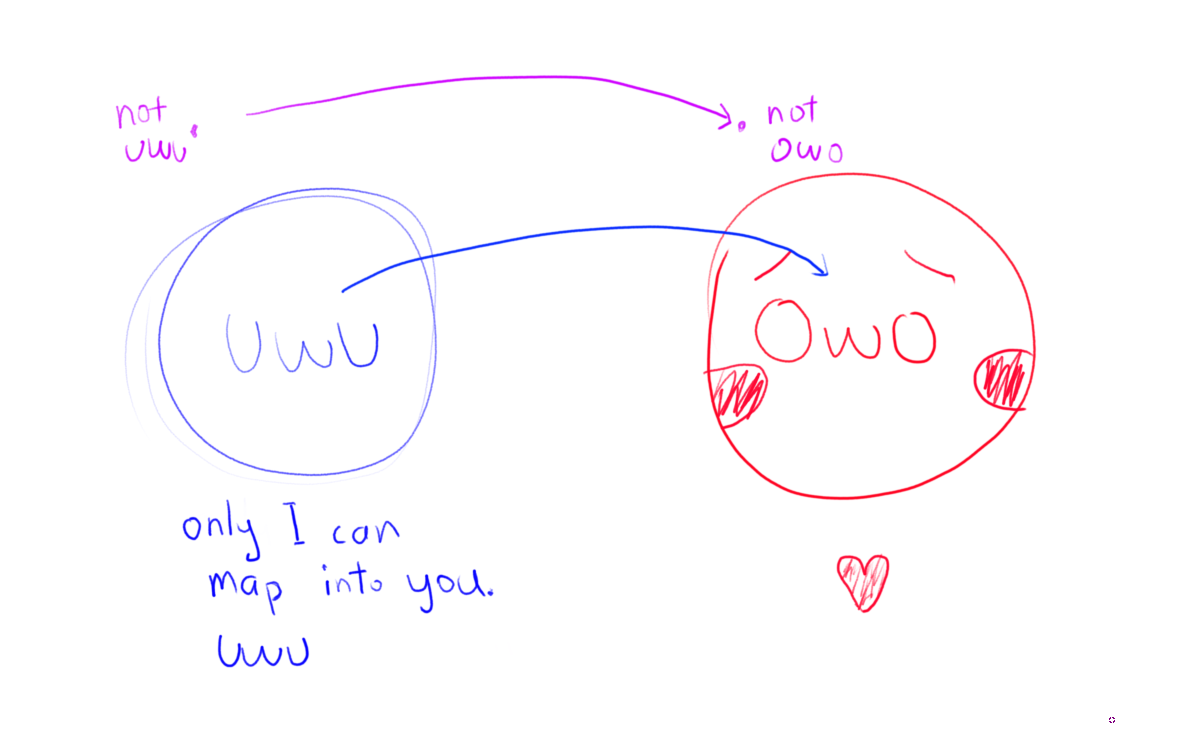 not
uwu
not
owo
UwU
OwO
only I can
map into you.
uwu